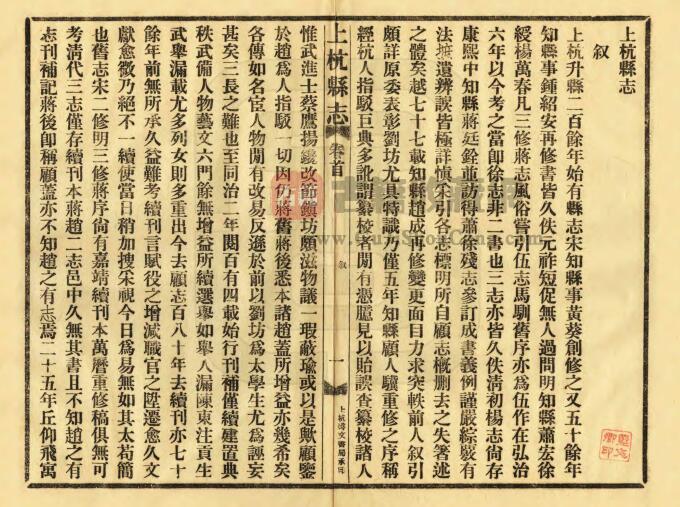 上杭縣志
叙
上杭升縣二百餘年始有縣志宋知縣事黃葵創修之又五十餘年
知縣事鍾紹安再修書皆久佚元祚短促無人過問明知縣蕭宏徐
綬楊萬春凡三修蔣志風俗嘗引伍志馬馴舊序亦爲伍作在弘治
六年以今考之當卽徐志非二書也三志亦皆久佚清初楊志尙存
康熙中知縣蔣廷銓並訪得蕭徐殘志參訂成書義例謹嚴綜駁有
法摭遺辨誤皆極詳愼采引各志標明所自顧志概刪去之失著述
之體矣越七十七載知縣趙成再修變更面目力求突軼前人叙引
頗詳原委表彰劉坊尤具特識乃僅五年知縣顧人驥重修之序稱
經杭人指駁巨典多訛謂纂校者閒有憑臆見以貽誤查纂校諸人
惟武進士蔡鷹揚鐫改節鎮坊頗滋物議一瑕蔽瑜或以是歟顧鑒
於趙爲人指駁一切因仍蔣舊蔣後悉本諸趙蓋所增益亦幾希矣
各傳如名宦人物閒有改易反遜於前以劉坊爲太學生尤爲誣妄
甚矣三長之難也至同治二年閱百有四載始行刊補僅續建置典
秩武備人物藝文六門餘無增益所續選舉如舉人漏陳東注貢生
武舉漏載尤多列女則多重出今去顧志百八十年去續刊亦七十
餘年前無所承久益難考續刊言賦役之增減職官之陞遷愈久文
獻愈微乃絕不一續使當日稍加搜采視今日爲易無如其太苟簡
也舊志宋二修明三修蔣序尙有嘉靖續刊本萬曆重修稿俱無可
考清代三志僅存續刊本蔣趙二志邑中久無其書且不知趙之有
志刊補記蔣後卽稱顧蓋亦不知趙之有志焉二十五年丘仰飛寓
上杭縣志
卷首
叙
一